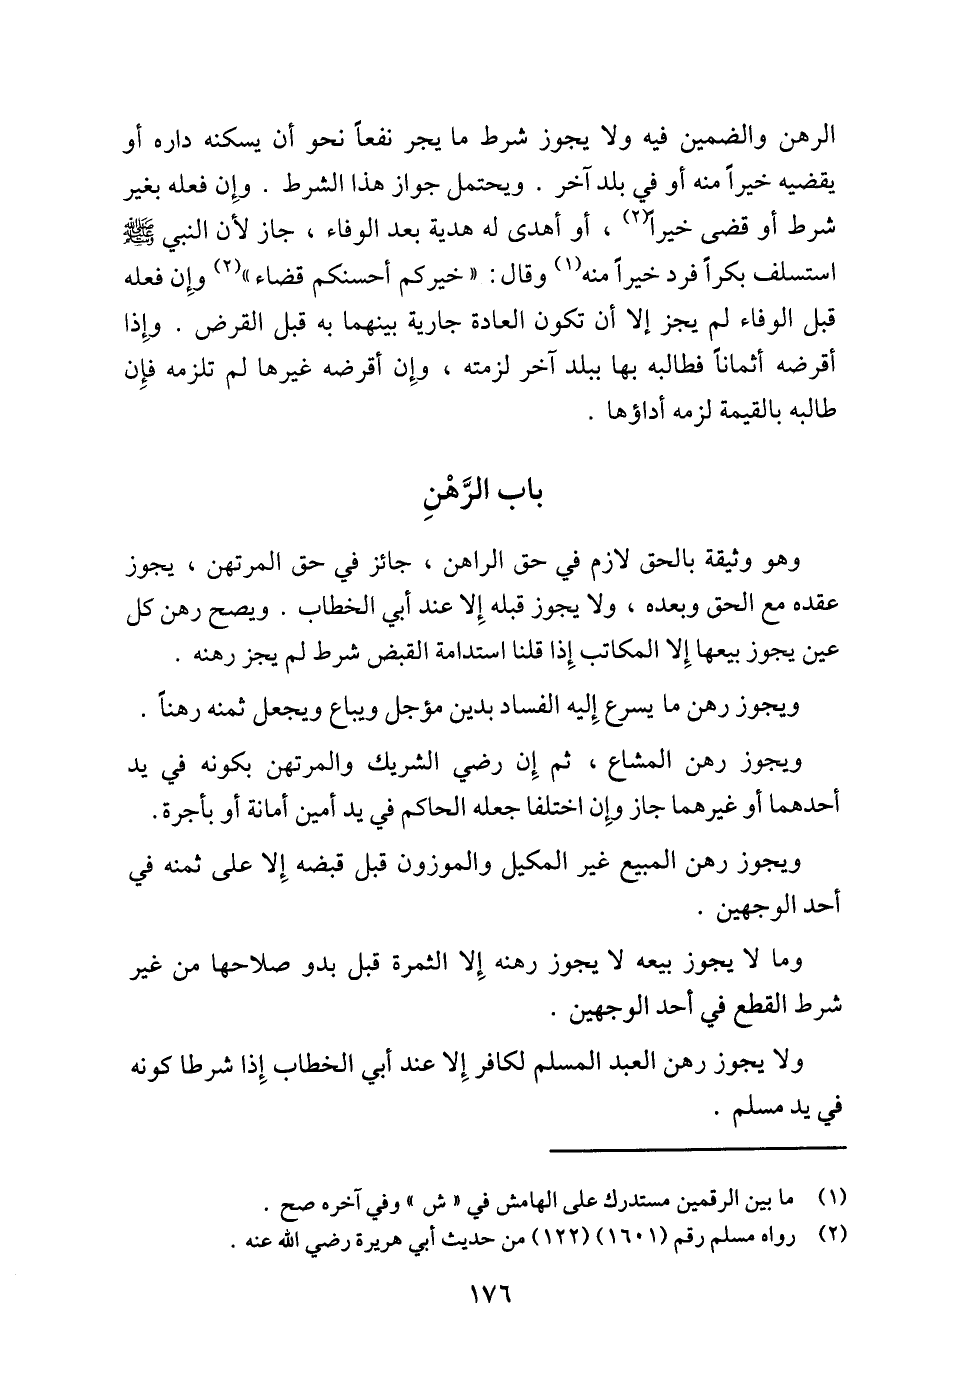 الرهن والضمين فيه ولا يجوز شرط ما يجر نفعاً نحو أن يسكنه داره أو
يقضيه خيراً منه أو في بلد آخر . ويحتمل جواز هذا الشرط . وإن فعله بغير
شرط أو قضى خيراً(٢) ، أو أهدى له هدية بعد الوفاء ، جاز لأن النبي ﷺ
استسلف بكراً فرد خيراً منه(١) وقال : « خيركم أحسنكم قضاء »(٢) وإن فعله
قبل الوفاء لم يجز إلا أن تكون العادة جارية بينهما به قبل القرض . وإذا
أقرضه أثماناً فطالبه بها ببلد آخر لزمته ، وإن أقرضه غيرها لم تلزمه فإن
طالبه بالقيمة لزمه أداؤها .
باب الرَّهْنِ
وهو وثيقة بالحق لازم في حق الراهن ، جائز في حق المرتهن ، يجوز
عقده مع الحق وبعده ، ولا يجوز قبله إلا عند أبي الخطاب . ويصح رهن كل
عين يجوز بيعها إلا المكاتب إذا قلنا استدامة القبض شرط لم يجز رهنه .
ويجوز رهن ما يسرع إليه الفساد بدين مؤجل ويباع ويجعل ثمنه رهناً .
ويجوز رهن المشاع ، ثم إن رضي الشريك والمرتهن بكونه في يد
أحدهما أو غيرهما جاز وإن اختلفا جعله الحاكم في يد أمين أمانة أو بأجرة .
ويجوز رهن المبيع غير المكيل والموزون قبل قبضه إلا على ثمنه في
أحد الوجهين .
وما لا يجوز بيعه لا يجوز رهنه إلا الثمرة قبل بدو صلاحها من غير
شرط القطع في أحد الوجهين .
ولا يجوز رهن العبد المسلم لكافر إلا عند أبي الخطاب إذا شرطا كونه
في يد مسلم .
(١) ما بين الرقمين مستدرك على الهامش في « ش » وفي آخره صح .
(٢) رواه مسلم رقم (١٦٠١) (١٢٢) من حديث أبي هريرة رضي الله عنه .
١٧٦